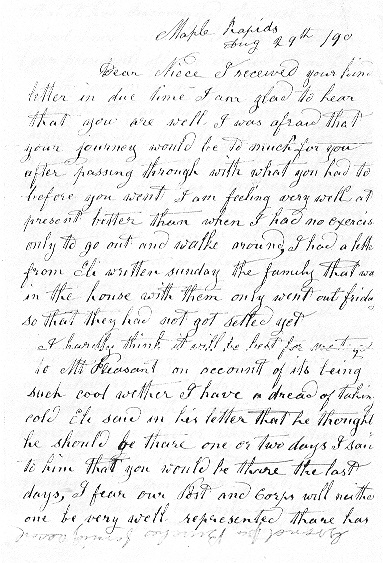 Maple Rapids
Aug 29th /90
Dear Niece I received your kin
letter in due time I am glad to hear
that you are well I was afraid that
your journey would be to much for you
after passing through with what you had to
before you went I am feeling very well at
present better than when I had no exercis
only to go out and walke around, I had a lette
from Eli written sunday the family that wa
in the house with them only went out friday
so that they had not got setled yet
I hardly think it will be best for me to go
to Mt Pleasant on account of its being
such cool wether I have a dread of takin
cold Eli said in his letter that he thought
he should be thare one or two days I sai
to him that you would be thare the last
days, I fear our Post and Corps will neithe
one be very well represented thare has